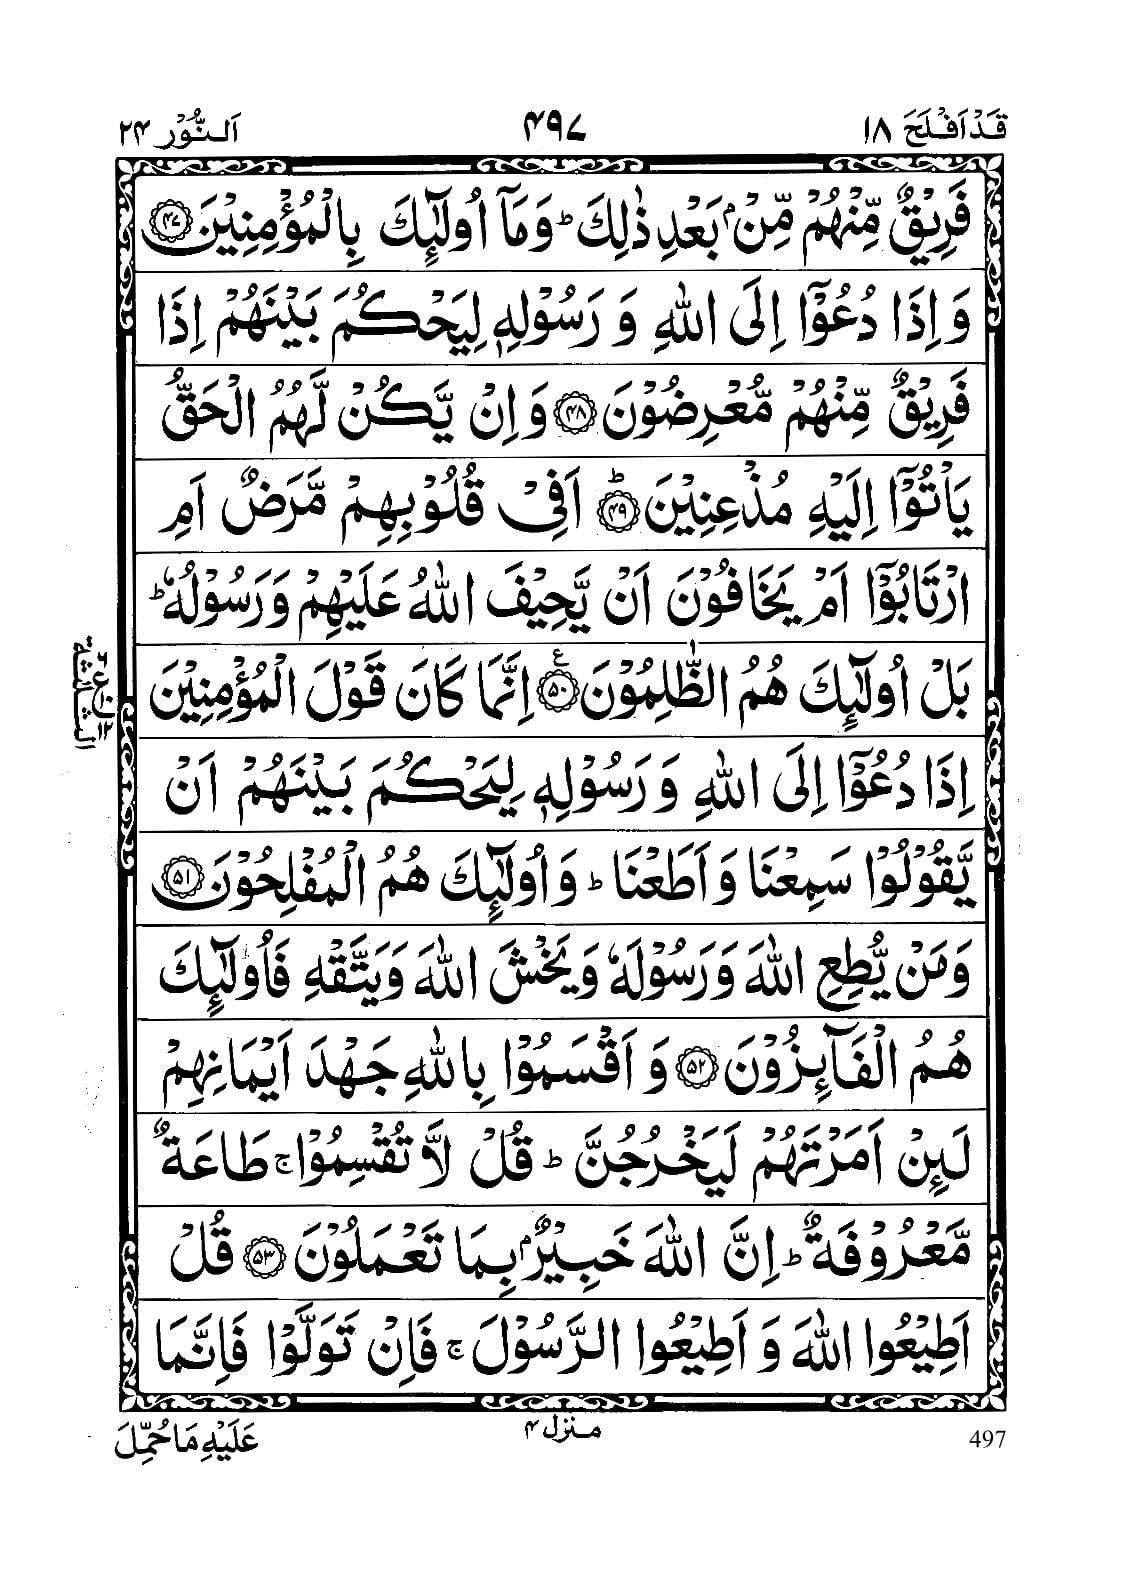 قَدْ اَفْلَحَ ۱۸
۴۹۷
اَلنُّوْر ۲۴
فَرِيْقٌ مِّنْهُمْ مِّنْۢ بَعْدِ ذٰلِكَ ؕ وَمَآ اُولٰٓئِكَ بِالْمُؤْمِنِيْنَ ﴿۴۷﴾
وَاِذَا دُعُوْٓا اِلَى اللّٰهِ وَ رَسُوْلِهٖ لِيَحْكُمَ بَيْنَهُمْ اِذَا
فَرِيْقٌ مِّنْهُمْ مُّعْرِضُوْنَ ﴿۴۸﴾ وَاِنْ يَّكُنْ لَّهُمُ الْحَقُّ
يَاْتُوْٓا اِلَيْهِ مُذْعِنِيْنَ ؕ﴿۴۹﴾ اَفِىْ قُلُوْبِهِمْ مَّرَضٌ اَمِ
ارْتَابُوْٓا اَمْ يَخَافُوْنَ اَنْ يَّحِيْفَ اللّٰهُ عَلَيْهِمْ وَرَسُوْلُهٗ ؕ
بَلْ اُولٰٓئِكَ هُمُ الظّٰلِمُوْنَ ﴿۵۰﴾ع اِنَّمَا كَانَ قَوْلَ الْمُؤْمِنِيْنَ
اِذَا دُعُوْٓا اِلَى اللّٰهِ وَ رَسُوْلِهٖ لِيَحْكُمَ بَيْنَهُمْ اَنْ
يَّقُوْلُوْا سَمِعْنَا وَ اَطَعْنَا ؕ وَاُولٰٓئِكَ هُمُ الْمُفْلِحُوْنَ ﴿۵۱﴾
وَمَنْ يُّطِعِ اللّٰهَ وَ رَسُوْلَهٗ وَيَخْشَ اللّٰهَ وَيَتَّقْهِ فَاُولٰٓئِكَ
هُمُ الْفَآئِزُوْنَ ﴿۵۲﴾ وَ اَقْسَمُوْا بِاللّٰهِ جَهْدَ اَيْمَانِهِمْ
لَئِنْ اَمَرْتَهُمْ لَيَخْرُجُنَّ ؕ قُلْ لَّا تُقْسِمُوْا ۚ طَاعَةٌ
مَّعْرُوْفَةٌ ؕ اِنَّ اللّٰهَ خَبِيْرٌۢ بِمَا تَعْمَلُوْنَ ﴿۵۳﴾ قُلْ
اَطِيْعُوا اللّٰهَ وَ اَطِيْعُوا الرَّسُوْلَ ۚ فَاِنْ تَوَلَّوْا فَاِنَّمَا
الثلٰثة
ع
۱۲
منزل ۴
عَلَيْهِ مَا حُمِّلَ
497